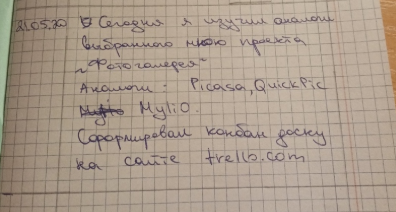 21.05.20 Сегодня я изучил аналоги
выбранного мною проекта
"Фотогалерея"
Аналоги: Picasa, QuickPic
MyliO.
Сформировал канбан доску
на сайте trello.com